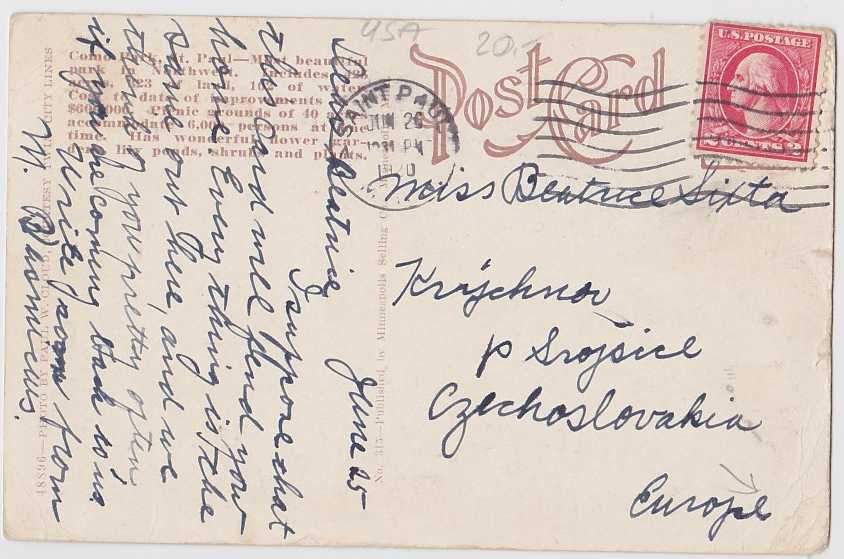 USA
20.-
Post Card
U.S. POSTAGE
2 CENTS 2
SAINT PAUL
JUN 26
1920
Como Park, St. Paul—Most beautiful
park in Northwest. Includes
acres, 323 land, 10 of water.
Cost to date of improvements
$600,000. Picnic grounds of 40 a
accommodate 6,000 persons at one
time. Has wonderful flower gar-
lily ponds, shrubs and plants.
48896—PHOTO BY PAUL W. CLOUD, COURTESY TWIN CITY LINES
No. 215—Published by Minneapolis Selling Co., Minneapolis
June 25
Dear Beatrice,
I suppose that
this card will find you
home. Every thing is the
same out there, and we
think of you pretty often
if you're coming back to us.
Write soon from
M.
Miss Beatrice Sixta
Krýchnov
p Srojsice
Czechoslovakia
Europe